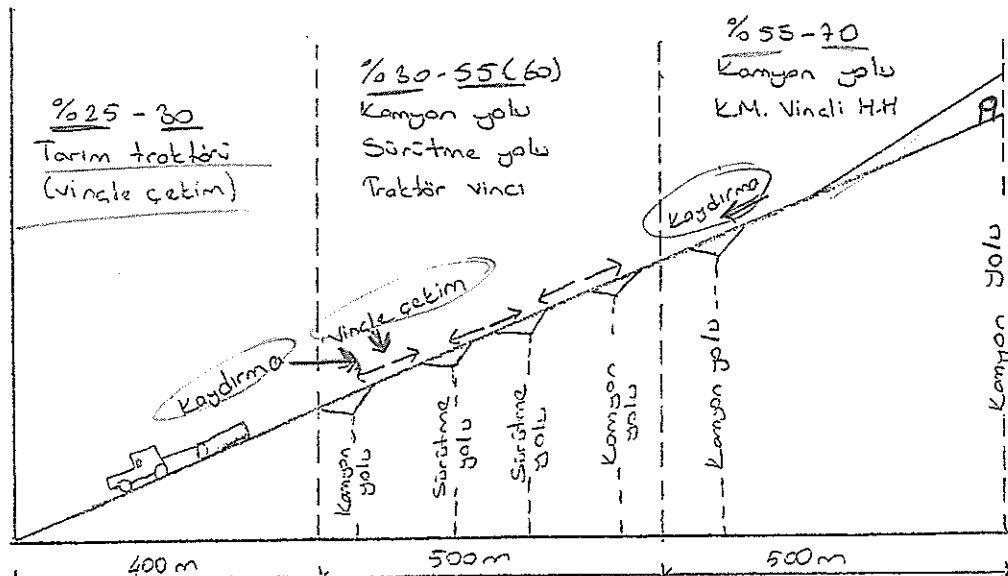 %25 - 30
Tarım traktörü
(vinçle çekim)
%30-55(60)
Kamyon yolu
Sürütme yolu
Traktör vinci
%55-70
Kamyon yolu
K.M. Vinçli H.H
Kaydırma
Vinçle çekim
Kaydırma
Kamyon
yolu
Sürütme
yolu
Sürütme
yolu
Kamyon
yolu
Kamyon yolu
Kamyon yolu
400m
500m
500m